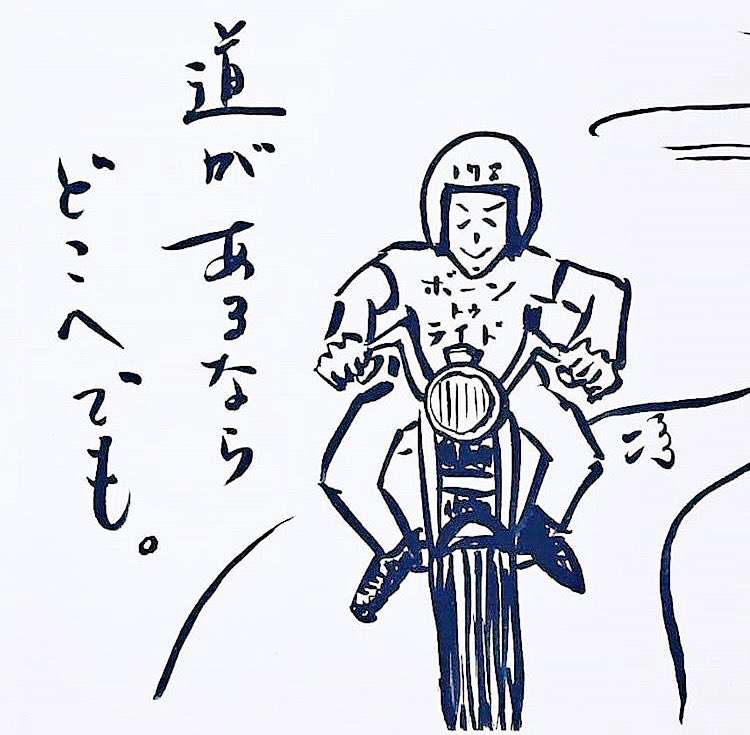 道があるなら
どこへでも。
178
ボーン
トゥ
ライド